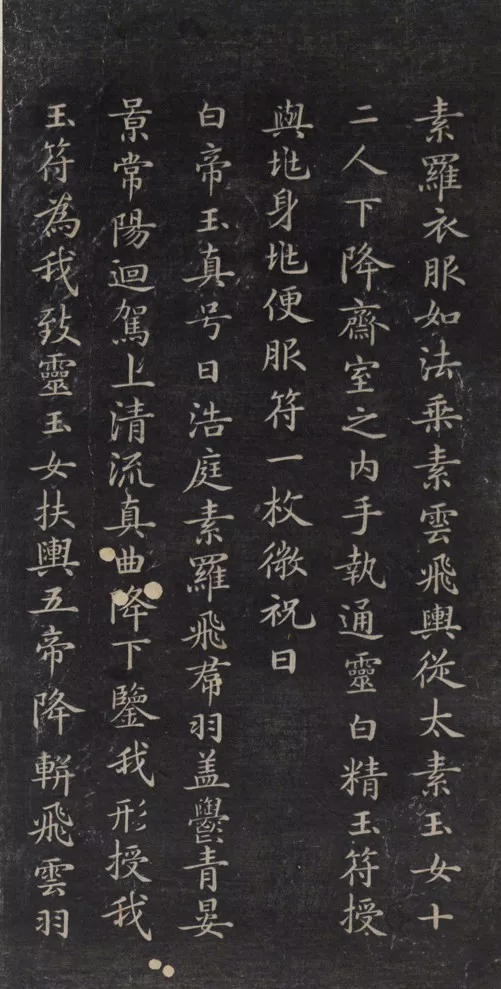 素羅衣服如法乘素雲飛輿從太素玉女十
二人下降齋室之内手執通靈白精玉符授
與地身地便服符一枚微祝曰
白帝玉真号曰浩庭素羅飛帬羽盖鬱青晏
景常陽迴駕上清流真曲降下鑒我形授我
玉符為我致靈玉女扶輿五帝降軿飛雲羽